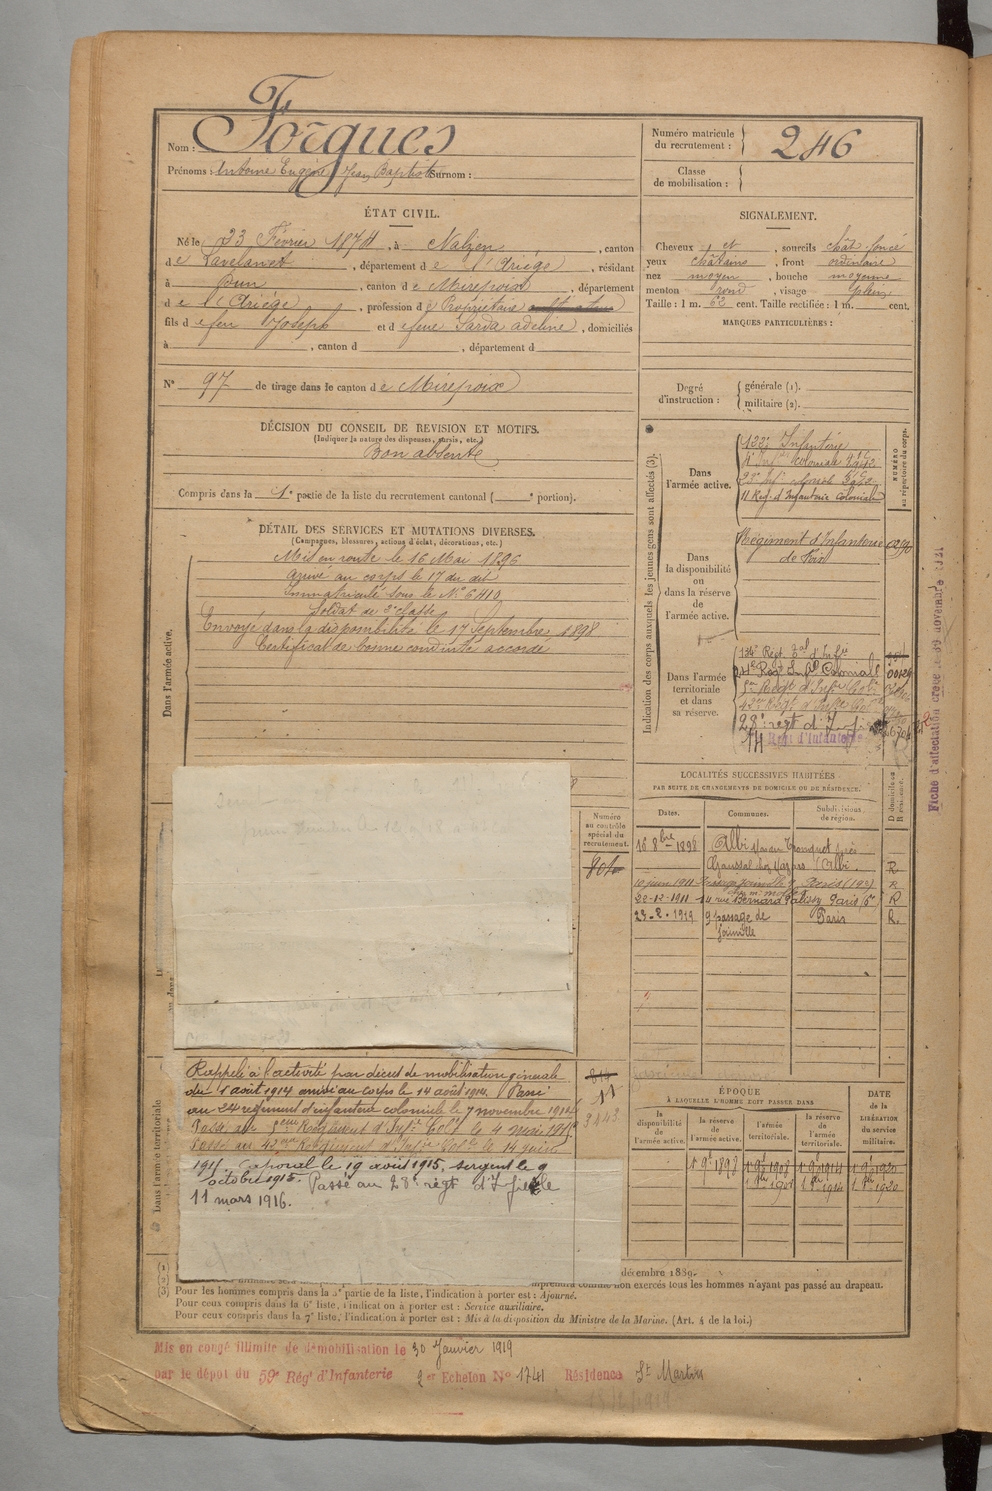 Nom : Forgues
Prénoms : Antoine Eugène Jean Baptiste Surnom :
Numéro matricule du recrutement : 246
Classe de mobilisation :
ÉTAT CIVIL.
Né le 23 Février 1874, à Nalzen, canton
de Lavelanet, département de l'Ariége, résidant
à Dun, canton de Mirepoix, département
de l'Ariége, profession de Propriétaire
fils de feu Joseph et de feue Sarda adeline, domiciliés
à , canton d , département d
N° 97 de tirage dans le canton de Mirepoix
SIGNALEMENT.
Cheveux et , sourcils chât. foncé
yeux châtains , front ordinaire
nez moyen , bouche moyenne
menton rond , visage plein
Taille : 1 m. 62 cent. Taille rectifiée : 1 m. cent.
MARQUES PARTICULIÈRES :
Degré d'instruction : générale (1).
militaire (2).
DÉCISION DU CONSEIL DE REVISION ET MOTIFS.
(Indiquer la nature des dispenses, sursis, etc.)
Bon absent
Compris dans la 1e partie de la liste du recrutement cantonal ( e portion).
DÉTAIL DES SERVICES ET MUTATIONS DIVERSES.
(Campagnes, blessures, actions d'éclat, décorations, etc.)
Dans l'armée active.
Mis en route le 16 Mai 1896
arrivé au corps le 17 du dit
Immatriculé sous le N° 6410
Soldat de 2e classe
Envoyé dans la disponibilité le 17 Septembre 1898
Certificat de bonne conduite accordé
Indication des corps auxquels les jeunes gens sont affectés (3).
NUMÉRO au répertoire du corps.
Dans l'armée active.
122e Infanterie
11 Rég. d'Infanterie Coloniale
Dans la disponibilité ou dans la réserve de l'armée active.
Régiment d'Infanterie
de Foix
Dans l'armée territoriale et dans sa réserve.
134e Régt. Tal d'Infie
24e Régt Infie Colonial
42e Régt d'Infie Cole
28e régt d'Infie
14 Régt d'Infanterie
Fiche d'affectation créée le 30 novembre 1931
LOCALITÉS SUCCESSIVES HABITÉES
PAR SUITE DE CHANGEMENTS DE DOMICILE OU DE RÉSIDENCE.
Dates. Communes. Subdivisions de région. D domicile ou R résidence.
16 8bre 1898 Albi
Albi R
10 juin 1911 Paris R
22-12-1911 14 rue Bernard Palissy Paris (6e) R
23-2-1919 9 passage de Joinville Paris R.
Numéro au contrôle spécial du recrutement.
Dans l'armée territoriale
Rappelé à l'activité par décret de mobilisation générale
du 1 août 1914 arrivé au corps le 14 août 1914. Passé
au 24 régiment d'infanterie coloniale le 7 novembre 1914
Passé au Régiment d'Infie Cole le 4 mai 1915.
Passé au 42eme Régiment d'Infie Cole le 14 juin
1915. Caporal le 19 août 1915, sergent le 9
octobre 1915. Passé au 28e régt d'Infie le
11 mars 1916.
3443
ÉPOQUE
À LAQUELLE L'HOMME DOIT PASSER DANS
la disponibilité de l'armée active. la réserve de l'armée active. l'armée territoriale. la réserve de l'armée territoriale.
DATE de la LIBÉRATION du service militaire.
1er 9e 1898 1er 9e 1908 1er 9e 1914 1er 9e 1920
décembre 1889.
imprimra comme non exercés tous les hommes n'ayant pas passé au drapeau.
(3) Pour les hommes compris dans la 5e partie de la liste, l'indication à porter est : Ajourné.
Pour ceux compris dans la 6e liste, l'indication à porter est : Service auxiliaire.
Pour ceux compris dans la 7e liste, l'indication à porter est : Mis à la disposition du Ministre de la Marine. (Art. 4 de la loi.)
Mis en congé illimité de démobilisation le 30 Janvier 1919
par le dépôt du 59e Rég. d'Infanterie 2er Echelon N° 1741 Résidence St Martin